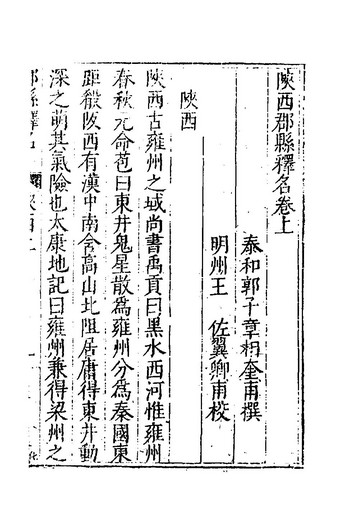 陝西郡縣釋名卷上
泰和郭子章相奎甫撰
明州王 佐翼卿甫校
陝西
陝西古雍州之域尚書禹貢曰黑水西河惟雍州
春秋元命苞曰東井鬼星散為雍州分為秦國東
距殽阪西有漢中南含高山北阻居庸得東井動
深之萌其氣險也太康地記曰雍州兼得梁州之
郡縣釋名